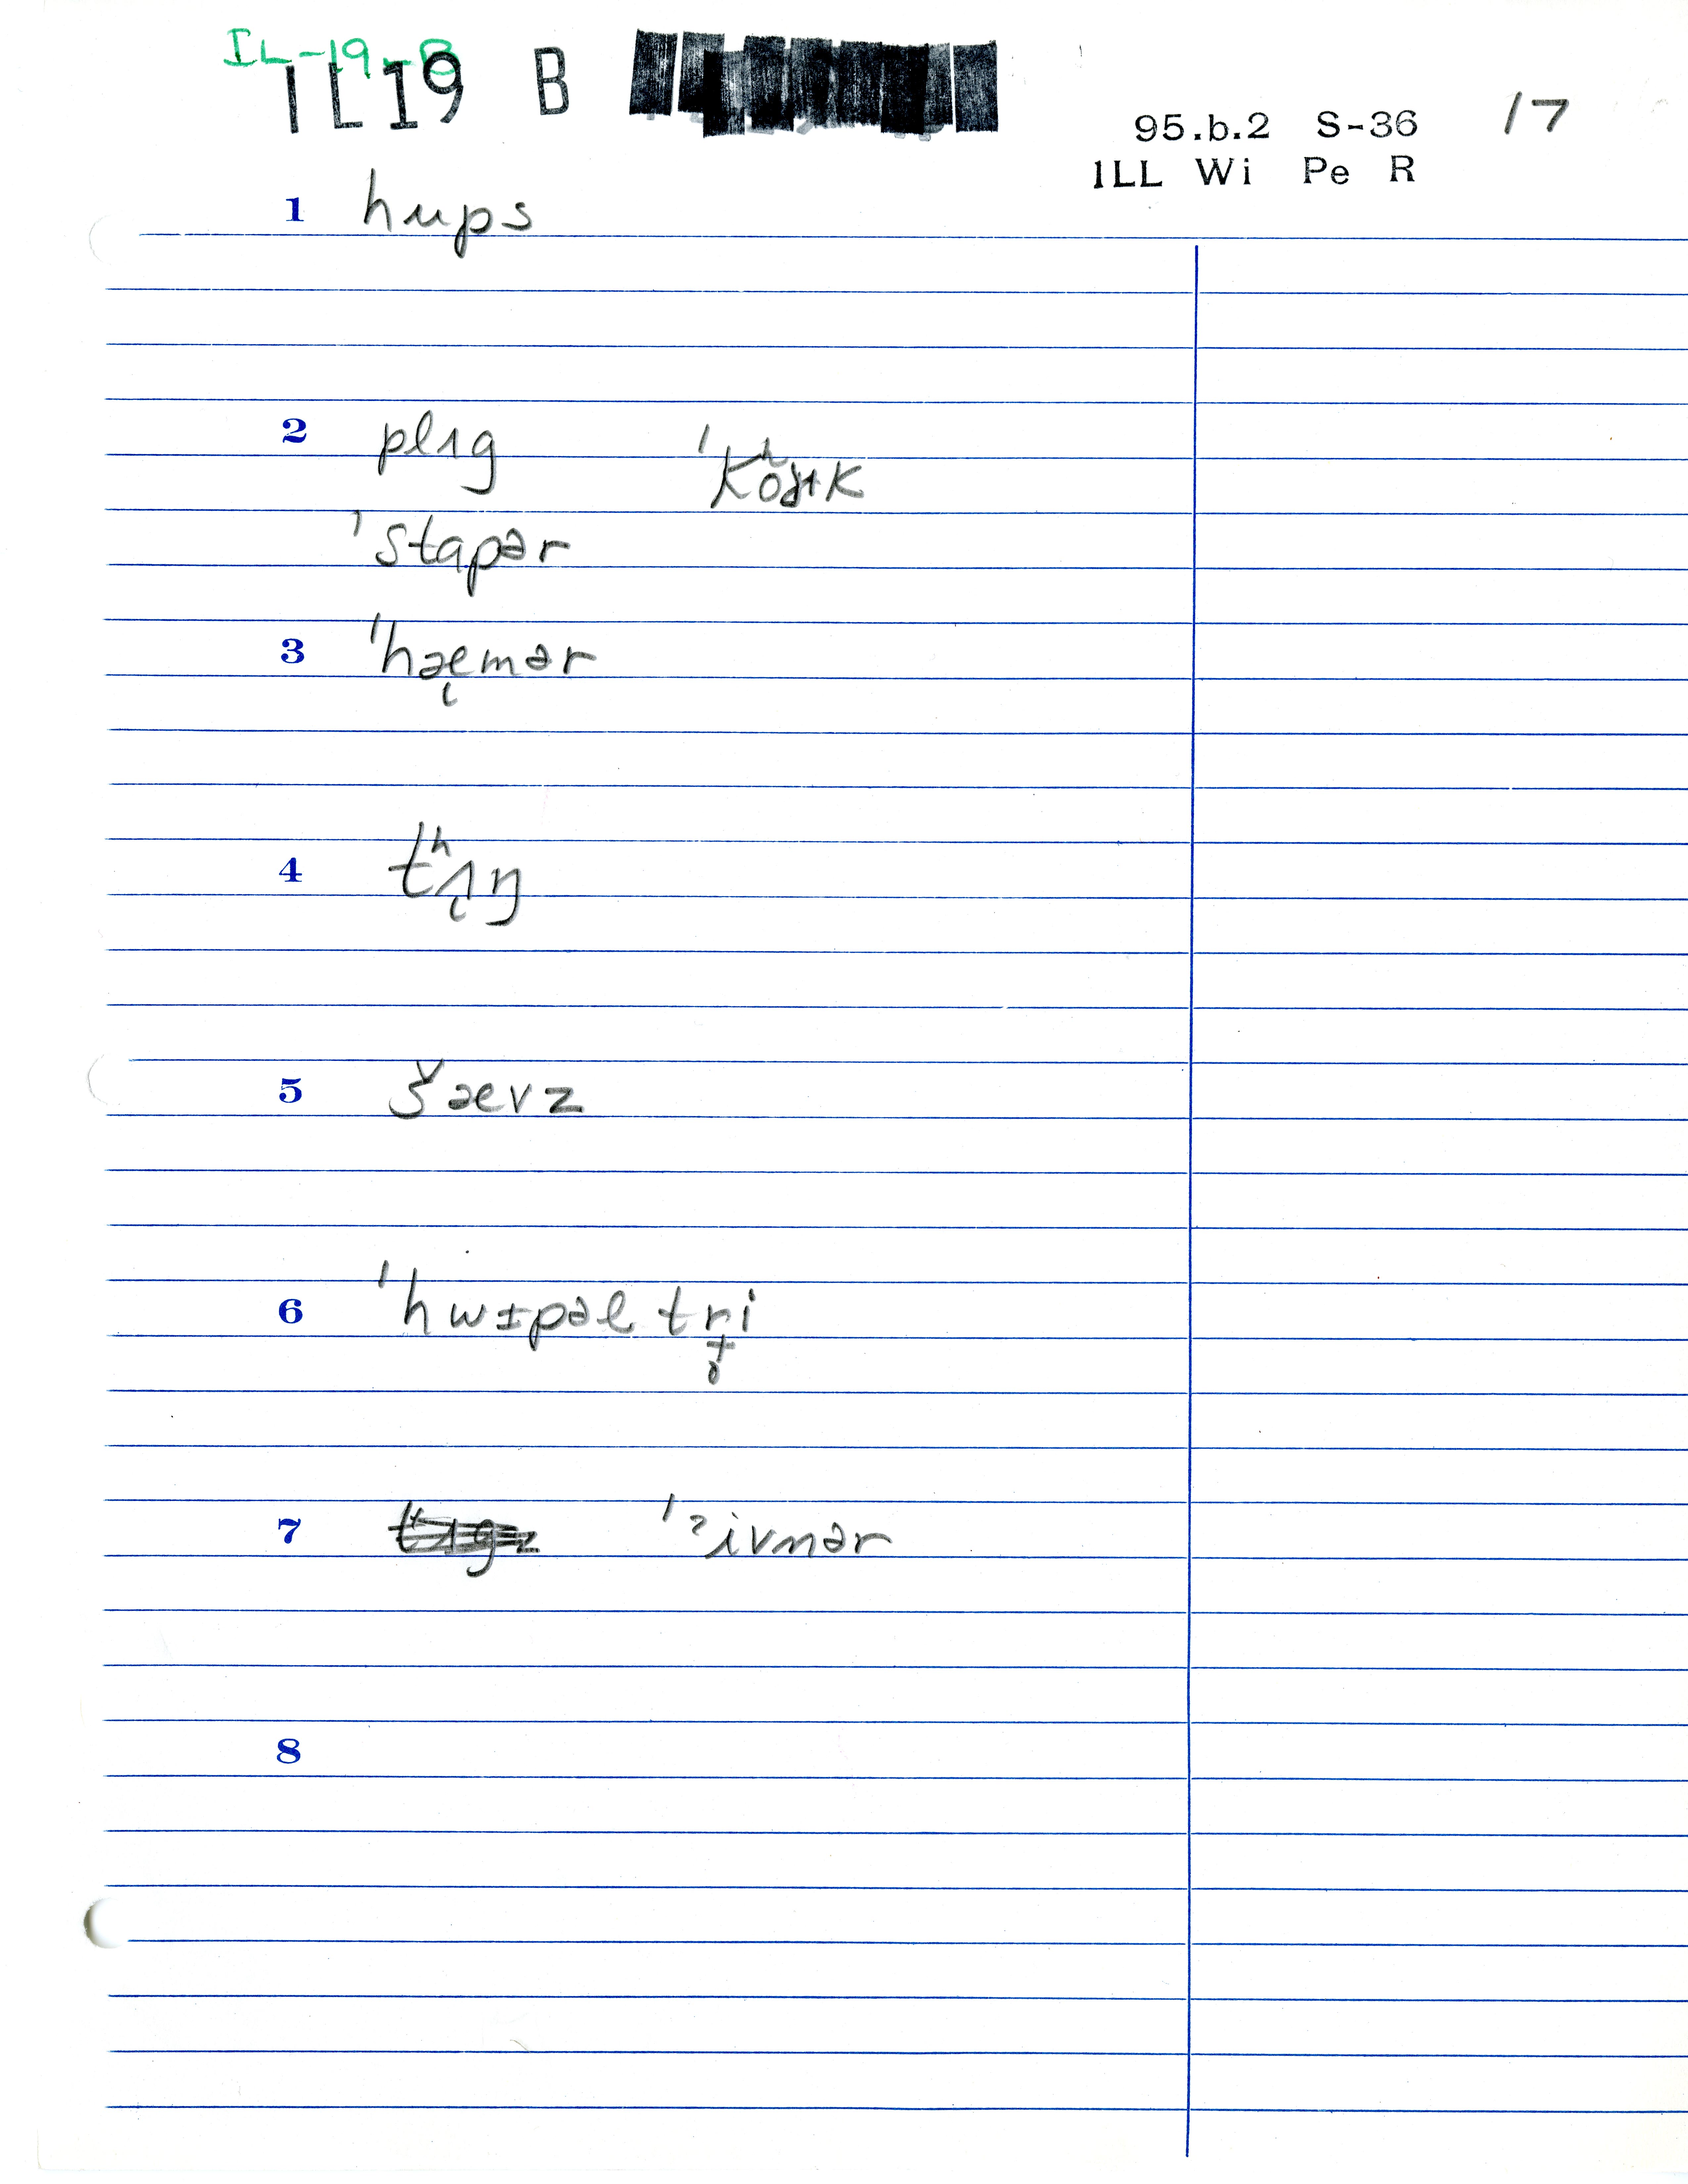 IL-19-B
IL19 B
95.b.2 S-36 17
ILL Wi Pe R
1 hups
2 plɪg
ˈstapər
3 ˈhæmər
4 tʰʌŋ
5 šævz
6 ˈhwɪpəltri
7 ˈʔivnər
8